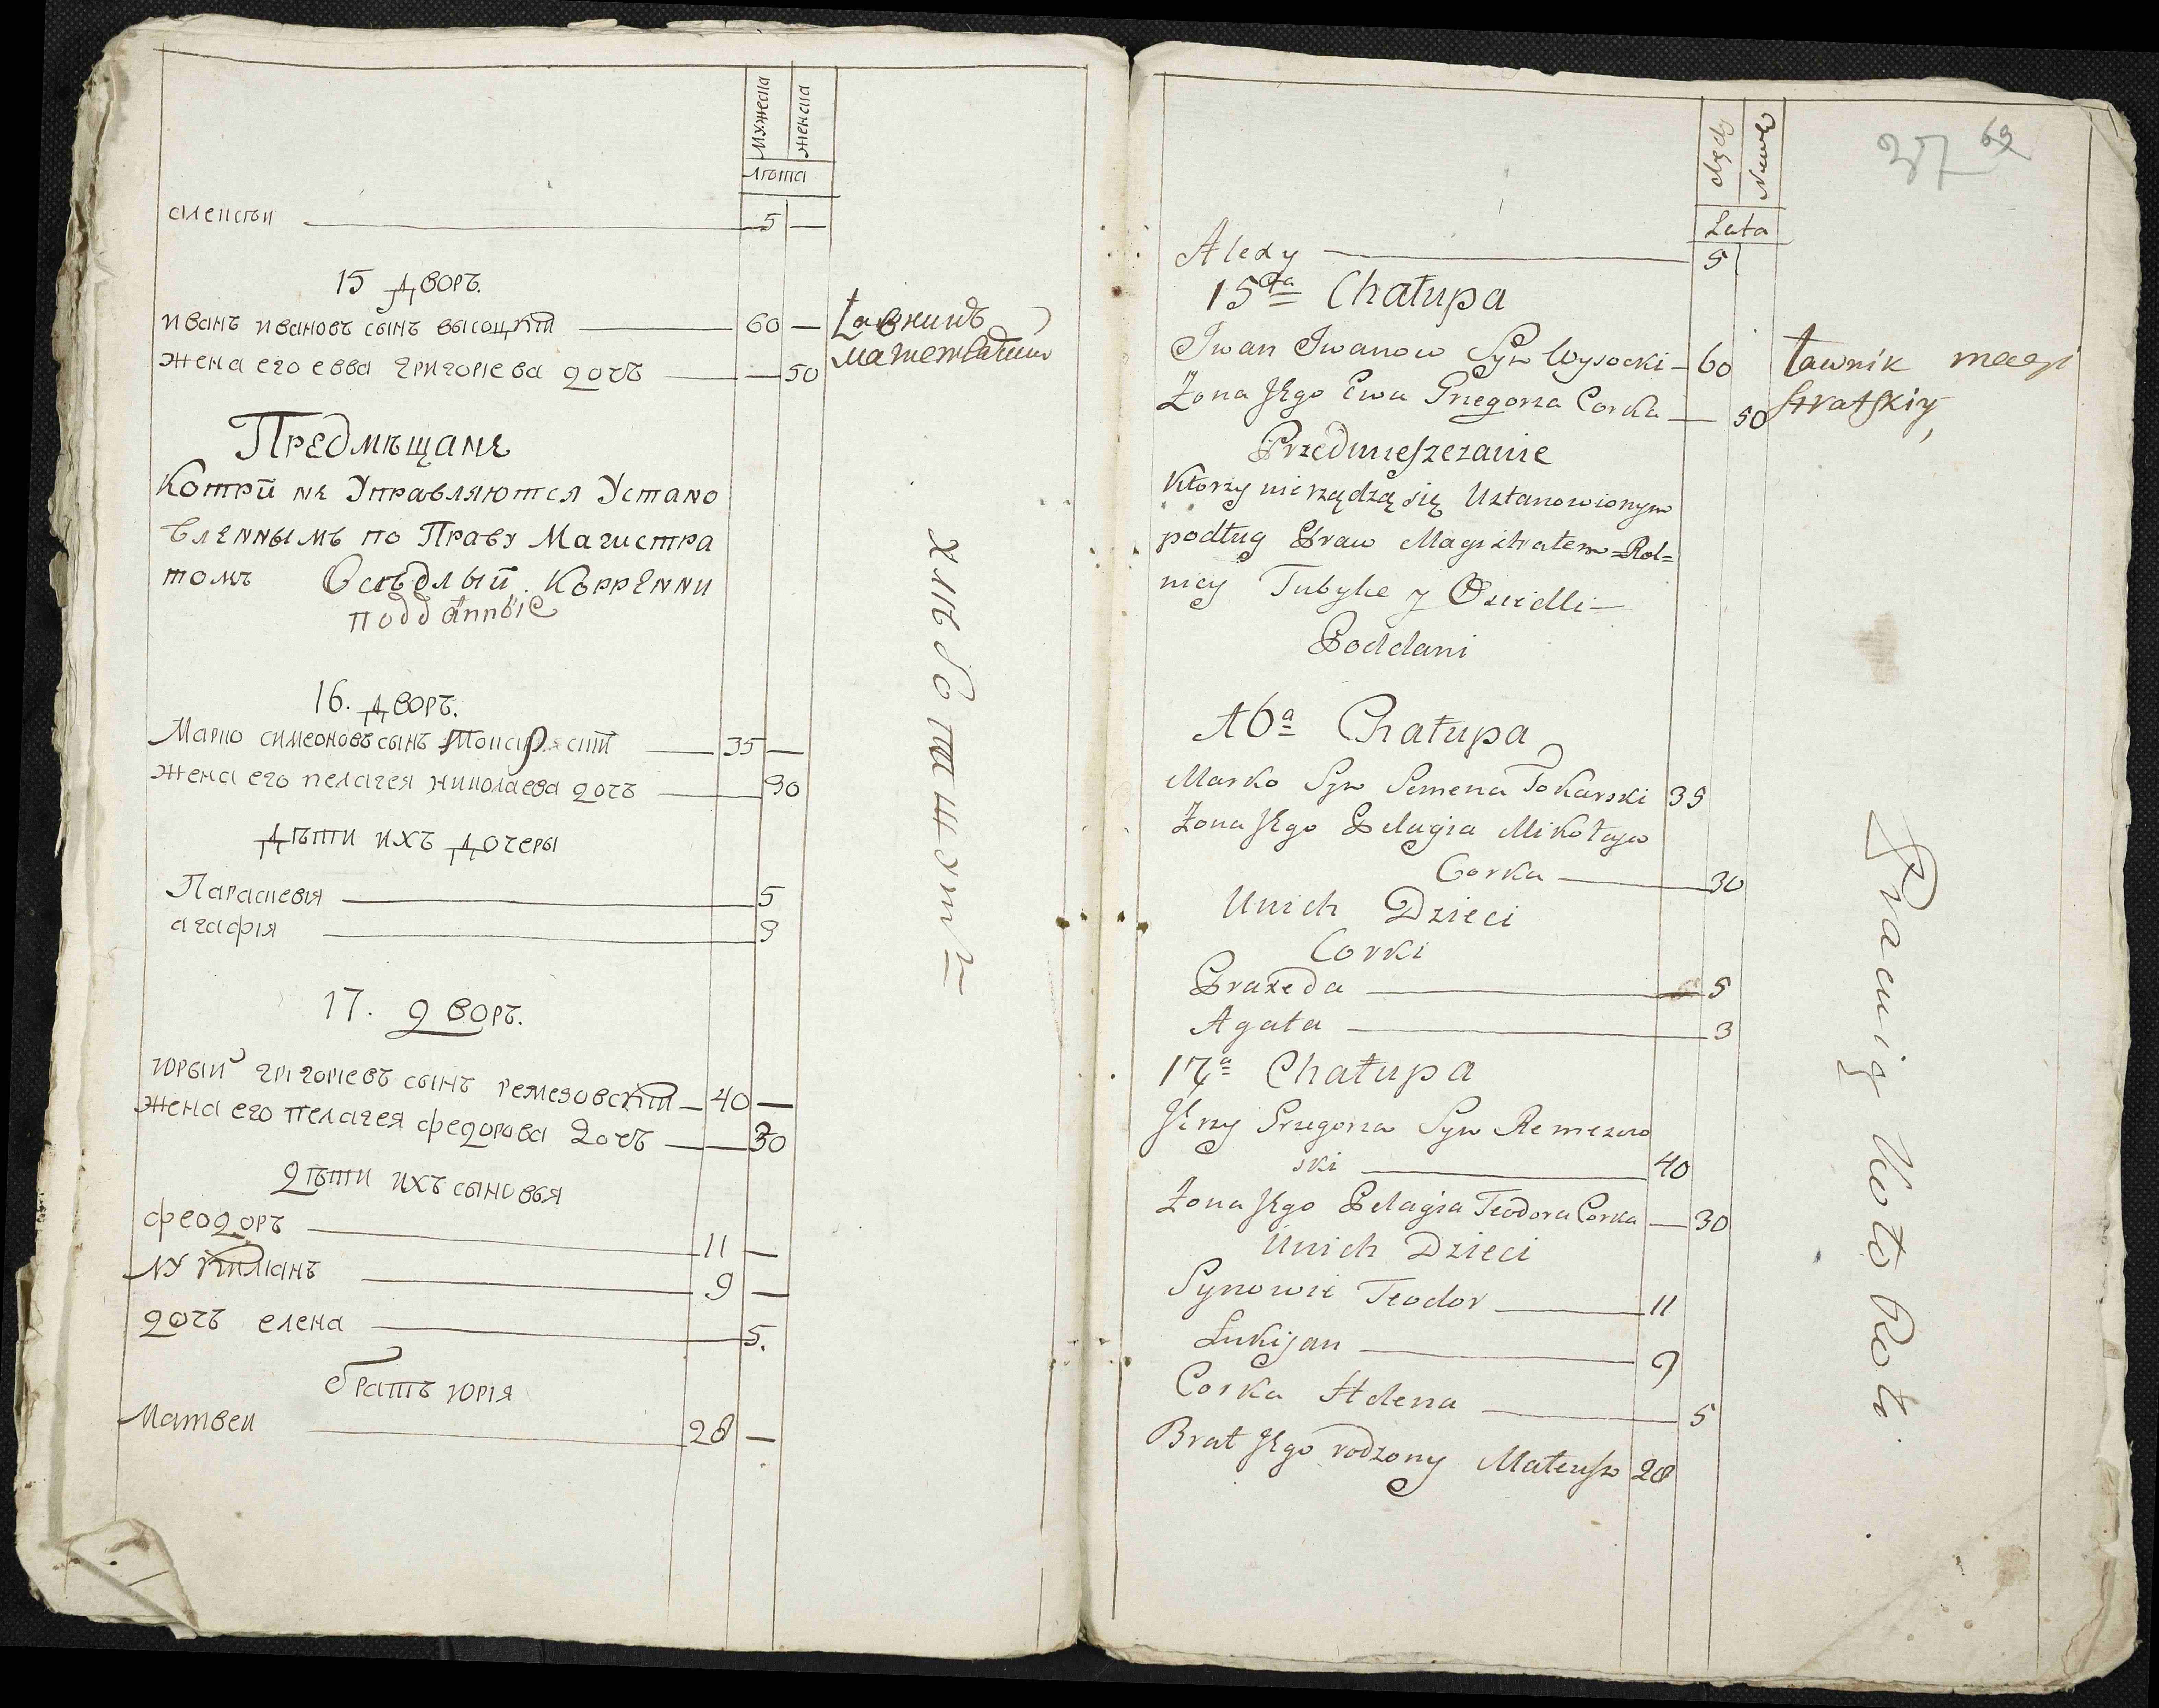 Мужеска
женска
лѣта
алексѣи 5 —
15 дворъ.
иванъ ивановъ сынъ высоцкій 60 —
Лавникъ
жена его евва григорiева дочъ — 50
Предмѣщане
Которіи не Управляются Устано
вленнымъ по Праву Магистра
томъ Осѣдлыи Коррѣнни
подданные
16. дворъ.
Марко симеоновъ сынъ Токарскій 35 —
жена его пелагея николаева дочъ 30
дѣти ихъ дочеры
Параскевiя 5
агафiя 3
17. дворъ.
юрый григорiевъ сынъ ремезовскій 40 —
жена его пелагея федорова дочъ 30
дѣти ихъ сыновья
феодоръ 11 —
лукиліанъ 9 —
дочъ елена 5.
братъ юрiя
Матвеи 28 —
37 69
Męzk
Lata
Alexy 5
15ta Chałupa
Iwan Iwanow Syn Wysocki 60
Żona Jego Ewa Grzegorza Corka 50
ławnik magi
stratskiy
Przedmieszczanie
Ktorzy nierządzą się Ustanowionym
podług Praw Magistratem Rol=
nicy Tubylce y Osiedli
Poddani
16a Chałupa
Marko Syn Semena Tokarski 35
Żona Jego Pelagia Mikołaja
Corka 30
Unich Dzieci
Corki
Praxeda 5
Agata 3
17a Chałupa
Jerzy Grzegorza Syn Remezow
ski 40
Żona Jego Pelagia Teodora Corka 30
Unich Dzieci
Synowie Teodor 11
Lukijan 9
Corka Helena 5
Brat Jego rodzony Mateusz 28
Pracuią koło Roli.